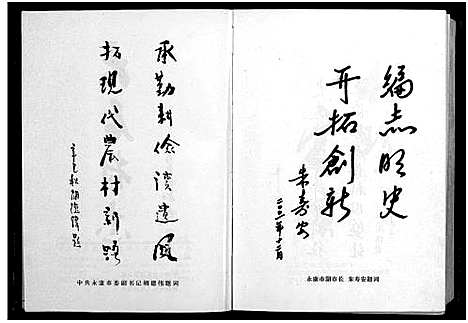 编志明史
开拓創新
朱寿安
二〇〇一年十二月
永康市副市长 朱寿安题词
承勤耕俭读遗風
拓現代農村新路
辛巳秋胡德伟题
中共永康市委副书记胡德伟题词